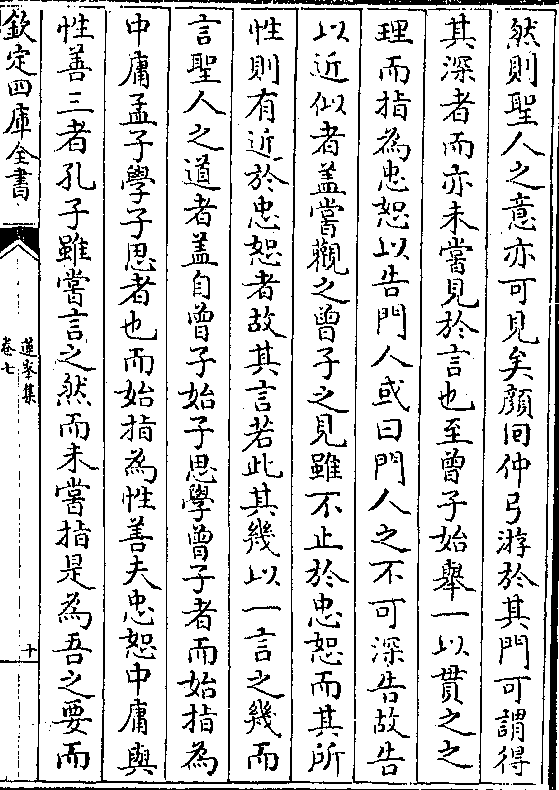 然則聖人之意亦可見矣顔回仲弓游於其門可謂得
其深者而亦未嘗見於言也至曾子始舉一以貫之之
理而指為忠恕以告門人或曰門人之不可深告故告
以近似者蓋嘗觀之曾子之見雖不止於忠恕而其所
性則有近於忠恕者故其言若此其幾以一言之幾而
言聖人之道者蓋自曾子始子思學曾子者而始指為
中庸孟子學子思者也而始指為性善夫忠恕中庸與
性善三者孔子雖嘗言之然而未嘗指是為吾之要而
欽定四庫全書
蓮峯集
卷七
十